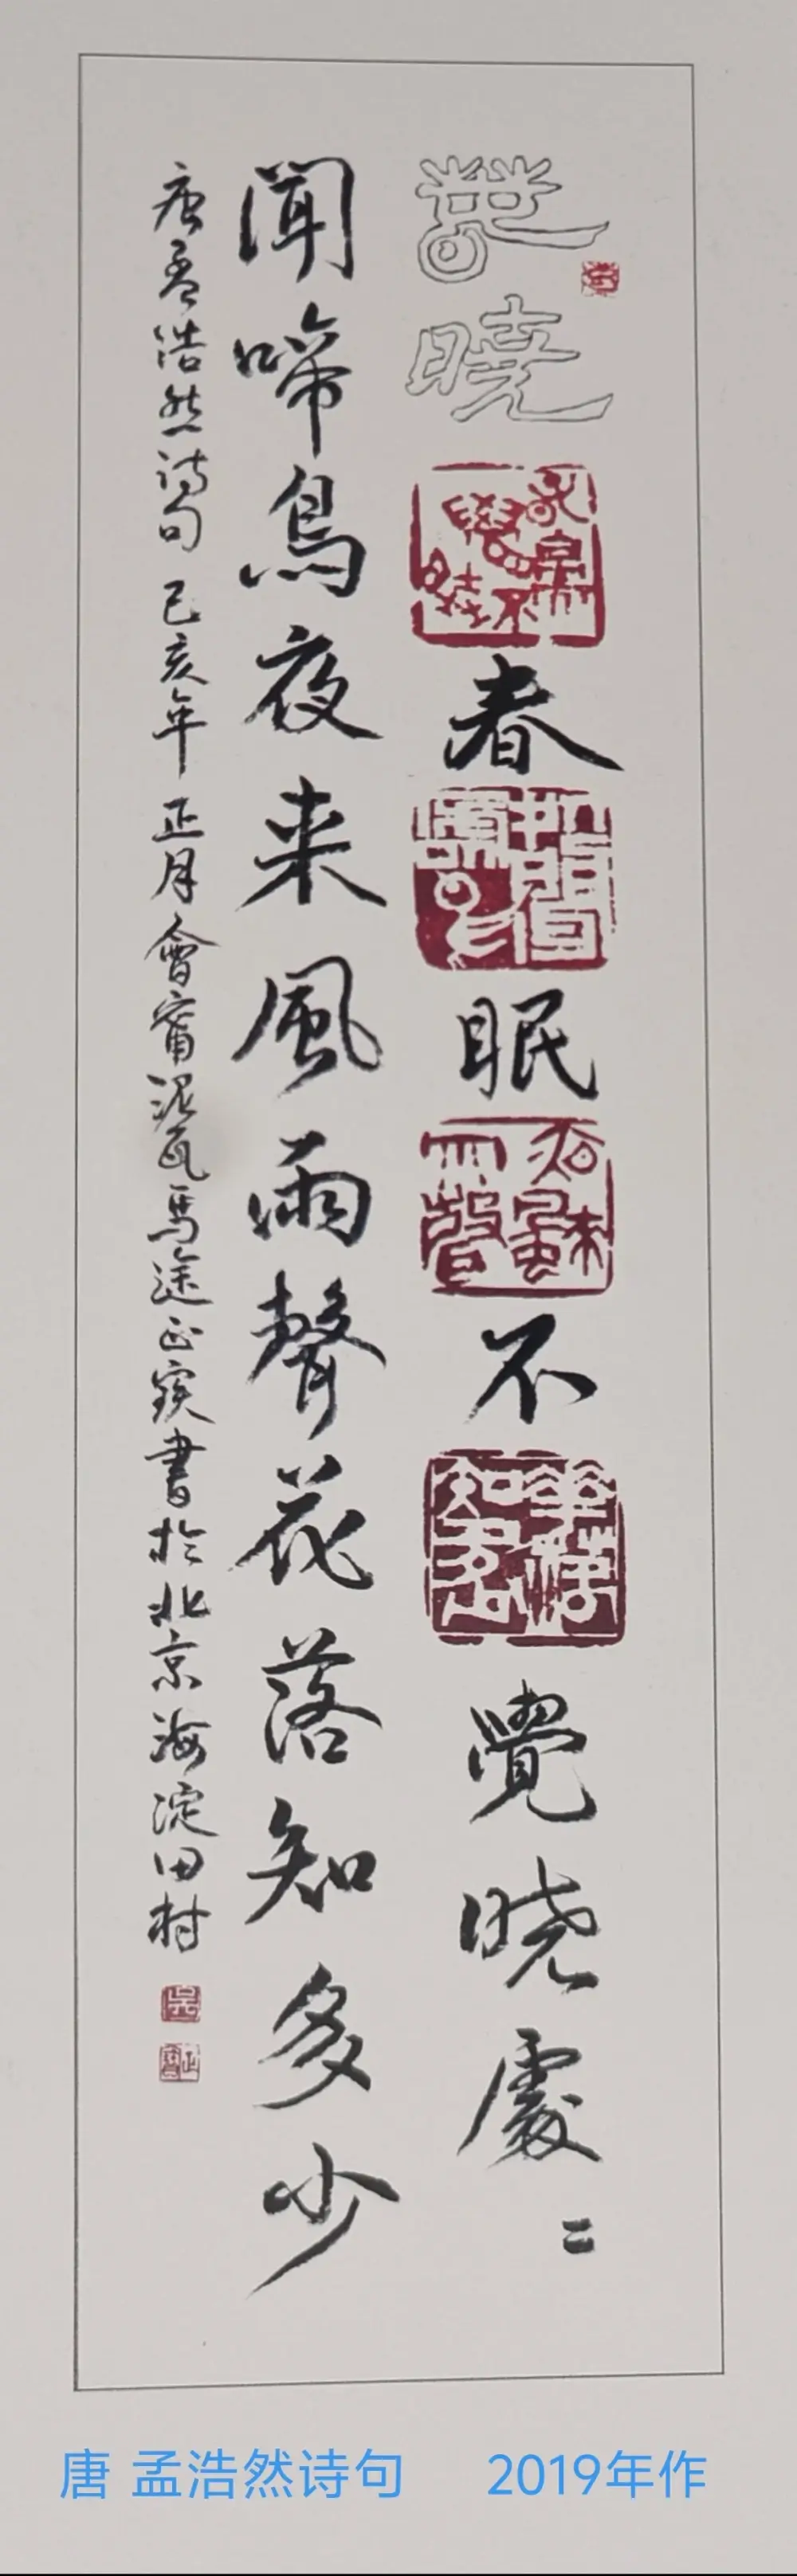 春曉
春眠不覺曉處〻
聞啼鳥夜來風雨聲花落知多少
唐孟浩然诗句 己亥年 正月會甯泥瓦馬途正寔書於北京海淀田村
唐 孟浩然诗句 2019年作